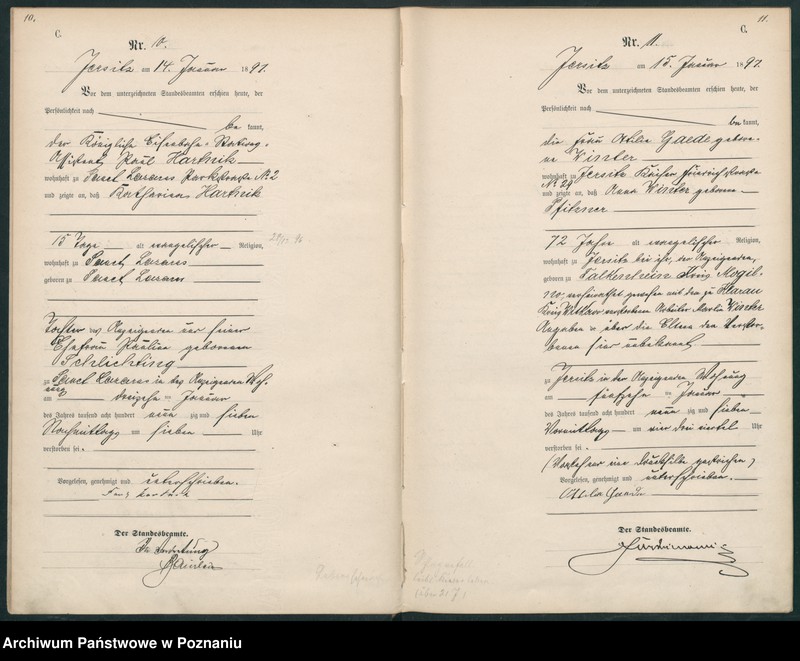 10.
C.
Nr. 10.
Jersitz am 14. Januar 1897.
Vor dem unterzeichneten Standesbeamten erschien heute, der
Persönlichkeit nach
be kannt,
der Königliche Eisenbahn-Stations-
Assistent Paul Hartnik
wohnhaft zu Sanct Lazarus Parkstraße No 2
und zeigte an, daß Katharina Hartnik
15 Tage alt evangelischer Religion,
wohnhaft zu Sanct Lazarus
geboren zu Sanct Lazarus
Tochter des Anzeigenden und seiner
Ehefrau Pauline geborenen
Schlichting
zu Sanct Lazarus in des Anzeigenden Woh-
nung
am dreizehn ten Januar
des Jahres tausend acht hundert neun zig und sieben
Nachmittags um sieben Uhr
verstorben sei.
Vorgelesen, genehmigt und unterschrieben.
Der Standesbeamte.
In Vertretung
11.
C.
Nr. 11.
Jersitz am 15. Januar 1897.
Vor dem unterzeichneten Standesbeamten erschien heute, der
Persönlichkeit nach
be kannt,
die Frau Otilie Gaede gebore-
ne Winter
wohnhaft zu Jersitz Kaiser Friedrichstraße
No 24
und zeigte an, daß Anna Winter geborene
Pfitzner
72 Jahre alt evangelischer Religion,
wohnhaft zu Jersitz bei ihr, der Anzeigenden,
geboren zu Falkenhein Kreis Mogil-
no, verheirathet gewesen mit dem zu
Kreis Witkowo verstorbenen Arbeiter Martin Winter
Angaben über die Eltern der Verstor-
benen sind unbekannt
zu Jersitz in der Anzeigenden Wohnung
am fünfzehn ten Januar
des Jahres tausend acht hundert neun zig und sieben
Vormittags um ein drei viertel Uhr
verstorben sei.
(Vorstehend eine Druckzeile gestrichen)
Vorgelesen, genehmigt und unterschrieben.
Der Standesbeamte.
Archiwum Państwowe w Poznaniu